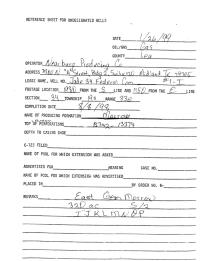 REFERENCE SHEET FOR UNDESIGNATED WELLS
DATE 1/26/99
OIL/GAS Gas
COUNTY Lea
OPERATOR Producing Co
ADDRESS Street, Bldg 2, Midland Tx
LEASE NAME, WELL NO. 34 Federal Com #1-J
FOOTAGE LOCATION, 1980 FROM THE S LINE AND 1650 FROM THE E LINE
SECTION 34 TOWNSHIP RANGE
COMPLETION DATE
NAME OF PRODUCING FORMATION Morrow
TOP OF PERFORATIONS
DEPTH TO CASING SHOE
C-123 FILED
NAME OF POOL FOR WHICH EXTENSION WAS ASKED
ADVERTISED FOR HEARING CASE NO.
NAME OF POOL FOR WHICH EXTENSION WAS ADVERTISED
PLACED IN BY ORDER NO. R-
REMARKS East Morrow
320 ac S/2
IJKLMNOP